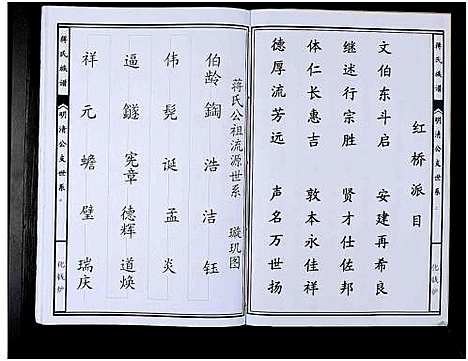 蒋氏族谱
《明清公支世系》
化钱炉
红桥派目
文伯东斗启 安建再希良
继述行宗胜 贤才仕佐邦
体仁长惠吉 敦本永佳祥
德厚流芳远 声名万世扬
蒋氏公祖流源世系 璇玑图
伯龄 鍧 浩 洁 钰
伟 髡 诞 孟 炎
逼 鐩 宪章 德辉 道焕
祥 元 蟾 璧 瑞庆
蒋氏族谱
《明清公支世系》
化钱炉